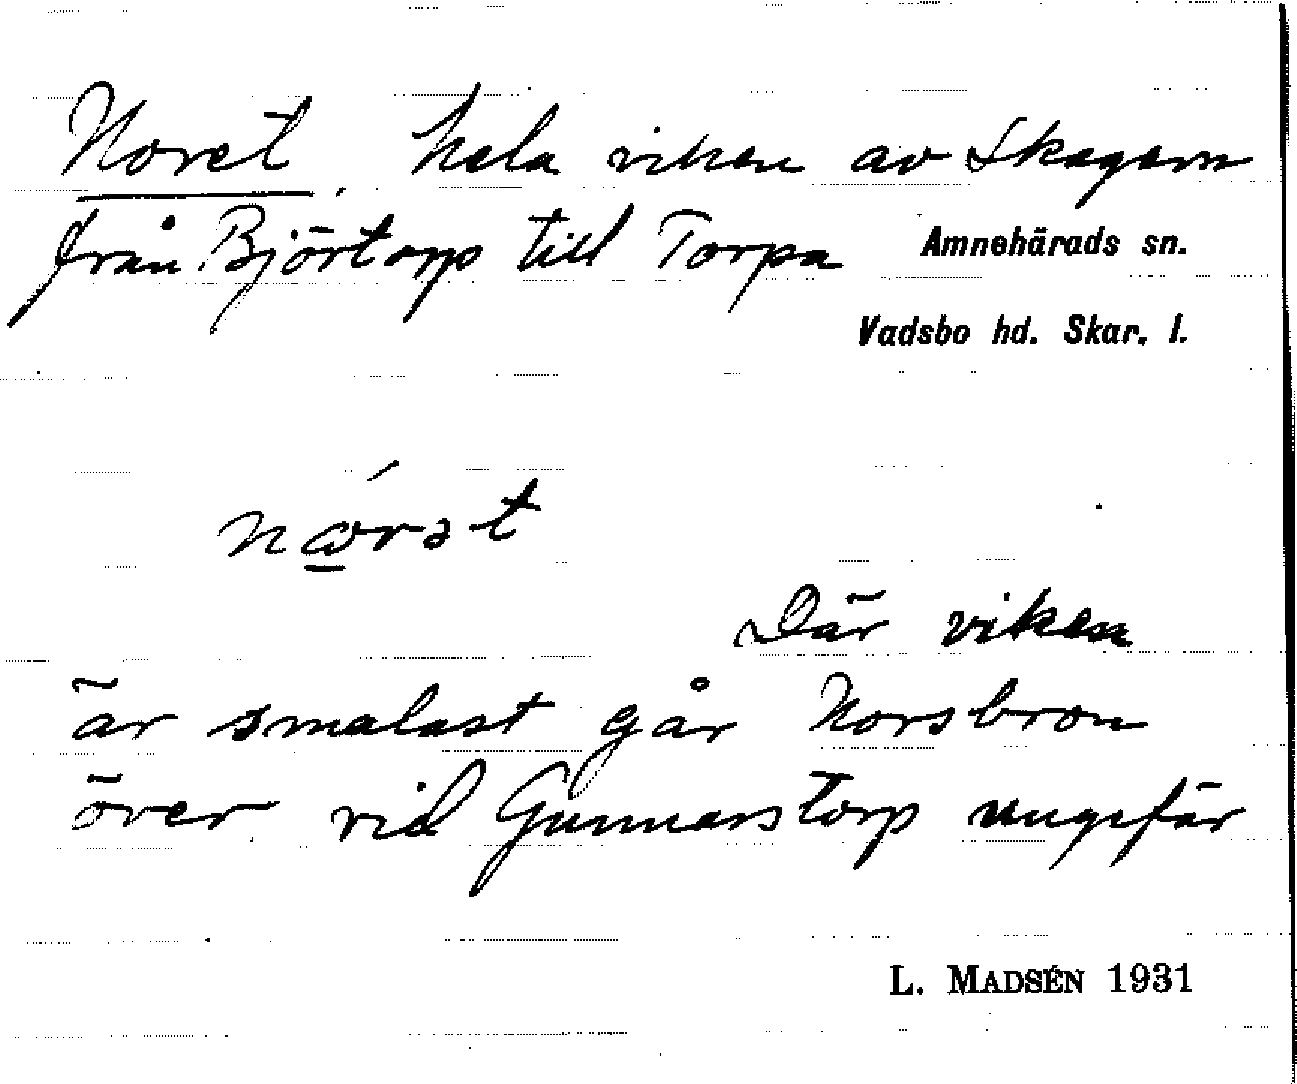 Noret, hela viken av Skagern
från Björtorp till Torpa
Amnehärads sn.
Vadsbo hd. Skar. l.
Där viken
är smalast går Norsbron
över vid Gunnarstorp ungefär
L. MADSÉN 1931